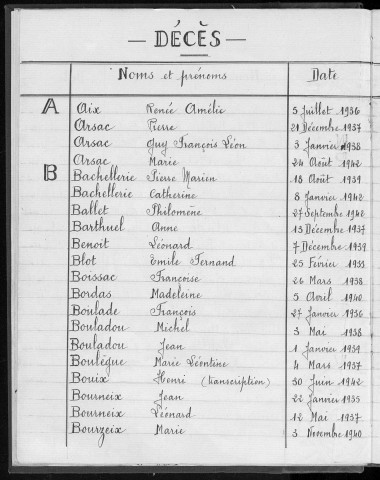 — DÉCÈS —
Noms et prénoms Date
A Aix Renée Amélie 5 Juillet 1936
Arsac Pierre 21 Décembre 1937
Arsac Guy François Léon 3 Janvier 1938
Arsac Marie 24 Août 1942
B Bachellerie Pierre Marien 18 Août 1939
Bachellerie Catherine 8 Janvier 1942
Ballet Philomène 27 Septembre 1942
Barthuel Anne 13 Décembre 1937
Benoit Léonard 7 Décembre 1939
Blot Emile Fernand 25 Février 1933
Boissac Françoise 26 Mars 1938
Bordas Madeleine 5 Avril 1940
Boulade François 27 Janvier 1936
Bouladou Michel 3 Mai 1938
Bouladou Jean 1 Janvier 1939
Boulègue Marie Léontine 4 Mars 1937
Bouix Henri (transcription) 30 Juin 1942
Bourneix Jean 22 Janvier 1935
Bourneix Léonard 12 Mai 1937
Bourzeix Marie 3 Novembre 1940